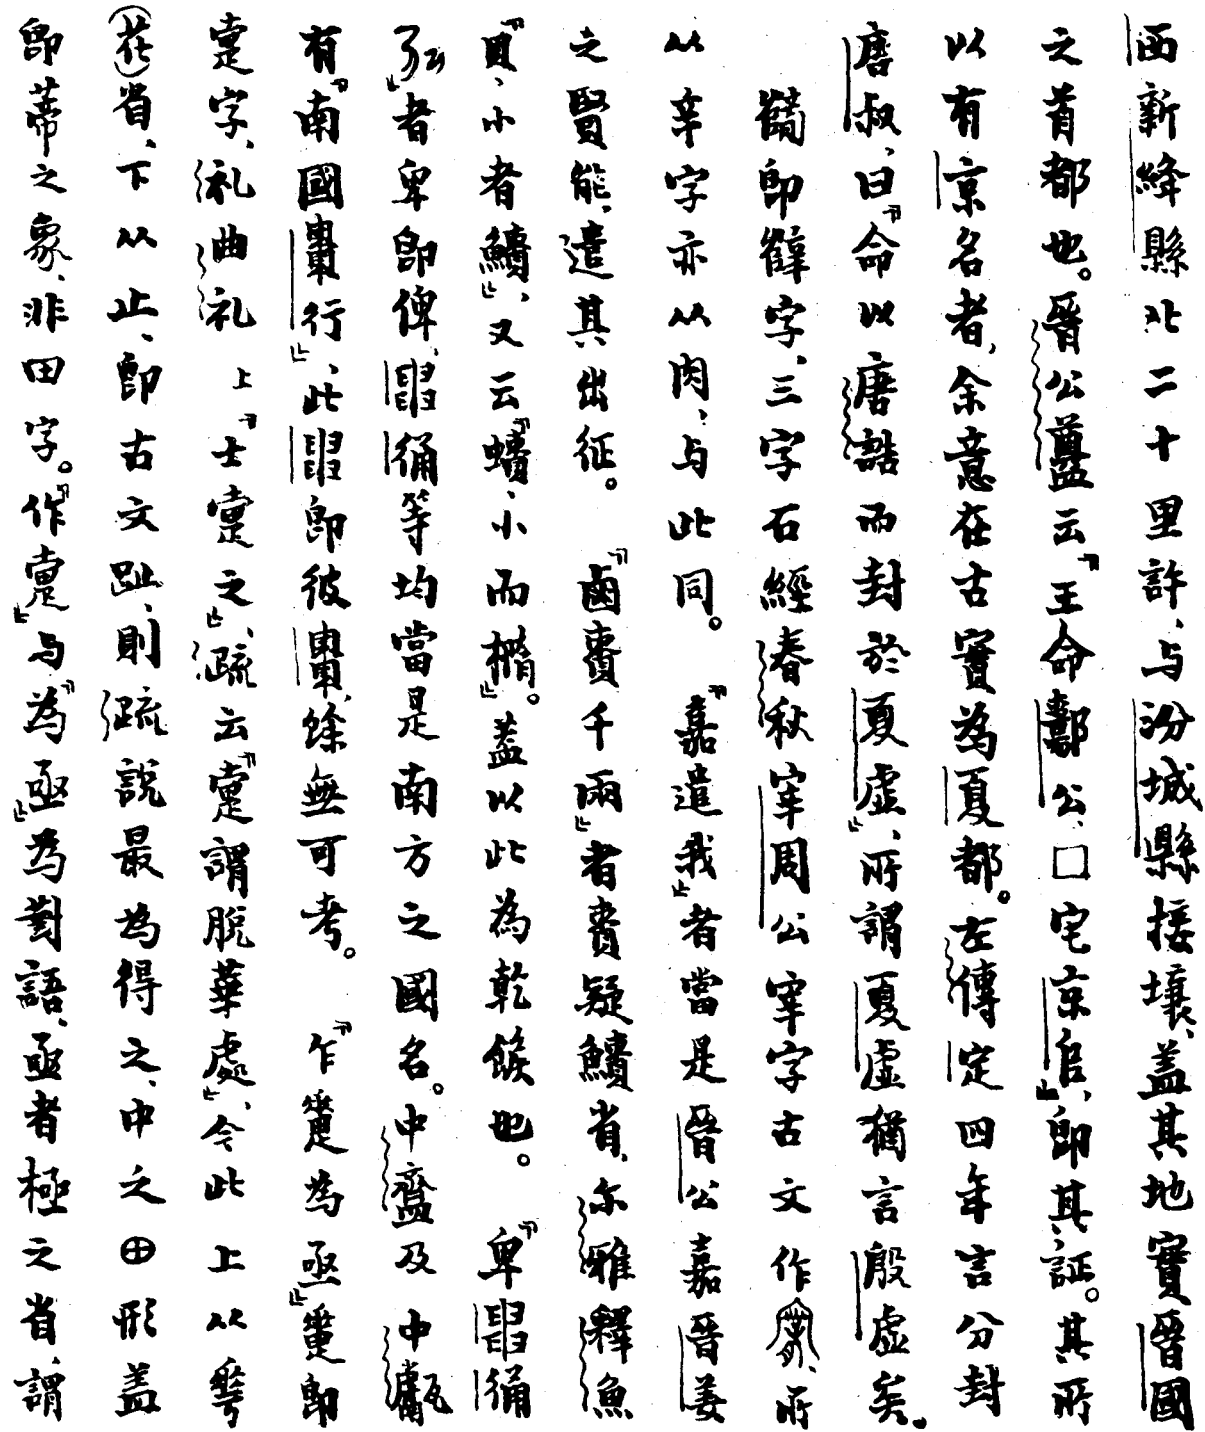 西新絳縣北二十里許，与汾城縣接壤，蓋其地實晉國
之首都也。晉公𥂴云『王命𨞻公，□宅京𠂤』，卽其証。其所
以有京名者，余意在古實為夏都。左傳定四年言分封
唐叔，曰『命以唐誥而封於夏虛』，所謂夏虛猶言殷虛矣。
卽辥字，三字石經春秋宰周公宰字古文作，所
从辛字亦从肉，与此同。『嘉遣我』者當是晉公嘉晉姜
之賢能，遣其出征。『鹵賚千兩』者賚疑鱝省，尔雅釋魚
『貝，小者鱝』，又云『蟦，小而橢』。蓋以此為乾餱也。『卑
』者卑卽俾，等均當是南方之國名。中齍及中甗
有『南國行』，此卽彼，餘無可考。『乍疐為亟』疐卽
疐字，礼曲礼上『士疐之』，疏云『疐謂脫華處』，今此上从雩
（花）省，下从止，卽古文趾，則疏説最為得之，中之⊕形蓋
卽蒂之象，非田字。『作疐』与『為亟』為對語，亟者極之省，謂